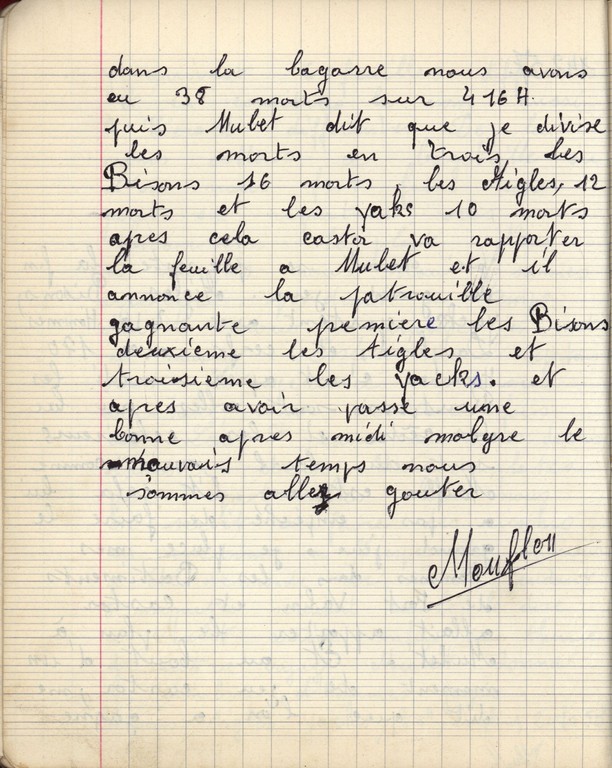 dans la bagarre nous avons
eu 38 morts sur 416 H.
puis Mulet dit que je divise
les morts en trois, les
Bisons 16 morts, les Aigles, 12
morts et les yaks 10 morts
apres cela castor va rapporter
la feuille a Mulet et il
annonce la patrouille
gagnante premiere les Bisons
deuxième les Aigles et
troisieme les yacks. et
apres avoir passe une
bonne apres midi malgre le
mauvais temps nous
sommes allez gouter
Mouflon